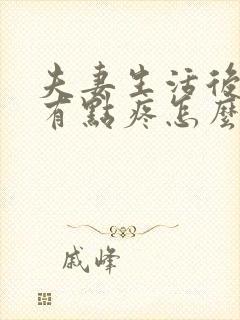 夫妻生活後
有點疼怎麼
戚峰